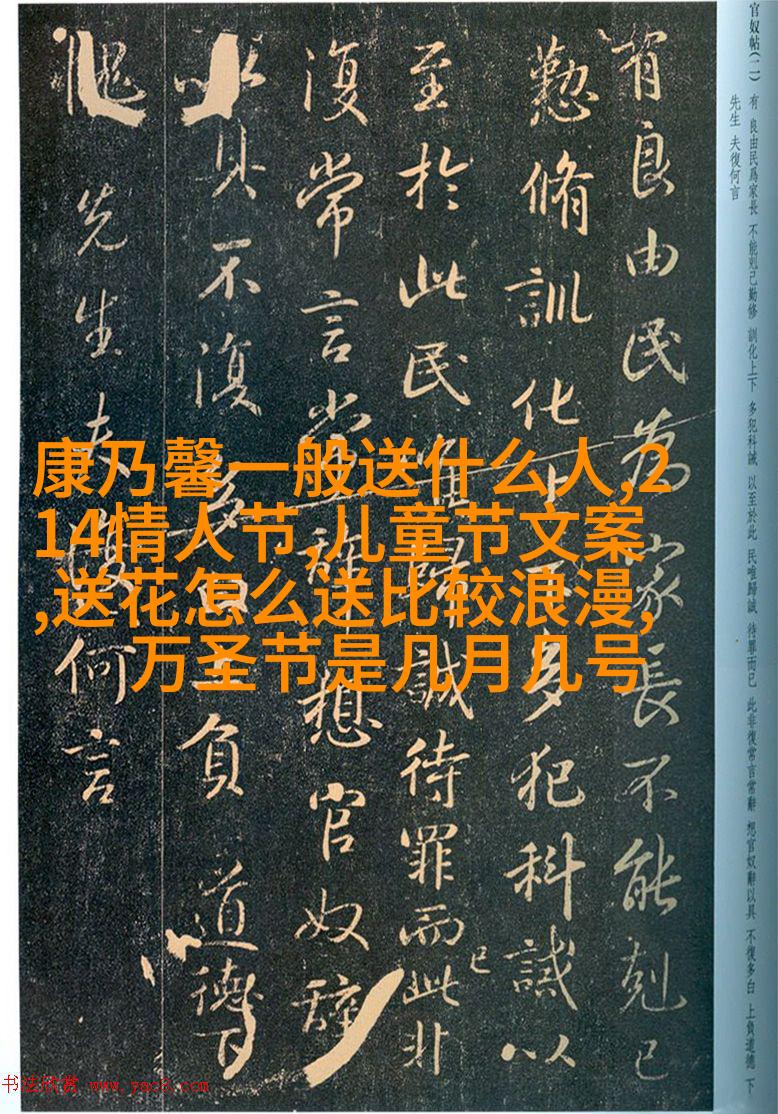 官奴帖(二) 有 良由民爲家長 不能剋己勤修 訓化上下 多犯科誡 以至於此 民唯歸誠 待罪而已 此非復常言常辭 想官奴辭以具 不復多白 上負道德 下
先生 夫復何言
有良由民為家長不能剋己
懃脩訓化上下多犯科誡以
至於此民唯歸誠待罪而已此非
復常言常辭想官奴辭
以具不復多白上負道德下
愧先生夫復何言
康乃馨一般送什么人,2
14情人节,儿童节文案
,送花怎么送比较浪漫,
万圣节是几月几号
书法欣赏 www.yac8.com